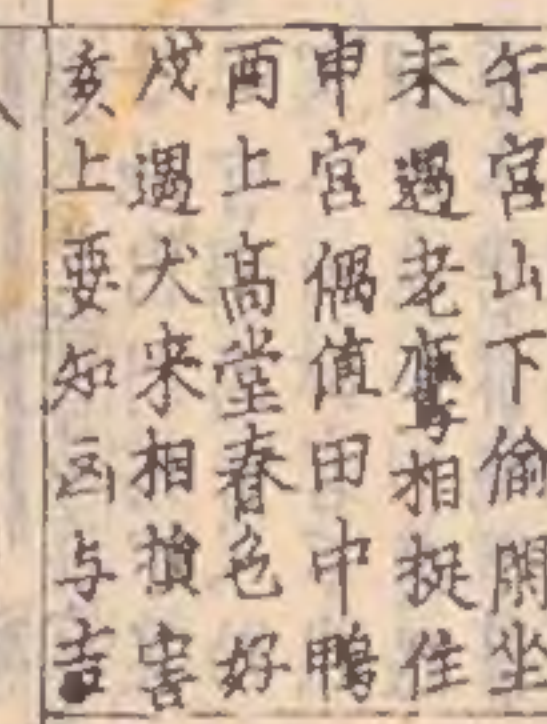 午宮山下偷閑坐
未遇老鷹相挺住
申宮偶值田中鴨
酉上高堂春色好
戌遇犬来相損害
亥上要知凶与吉